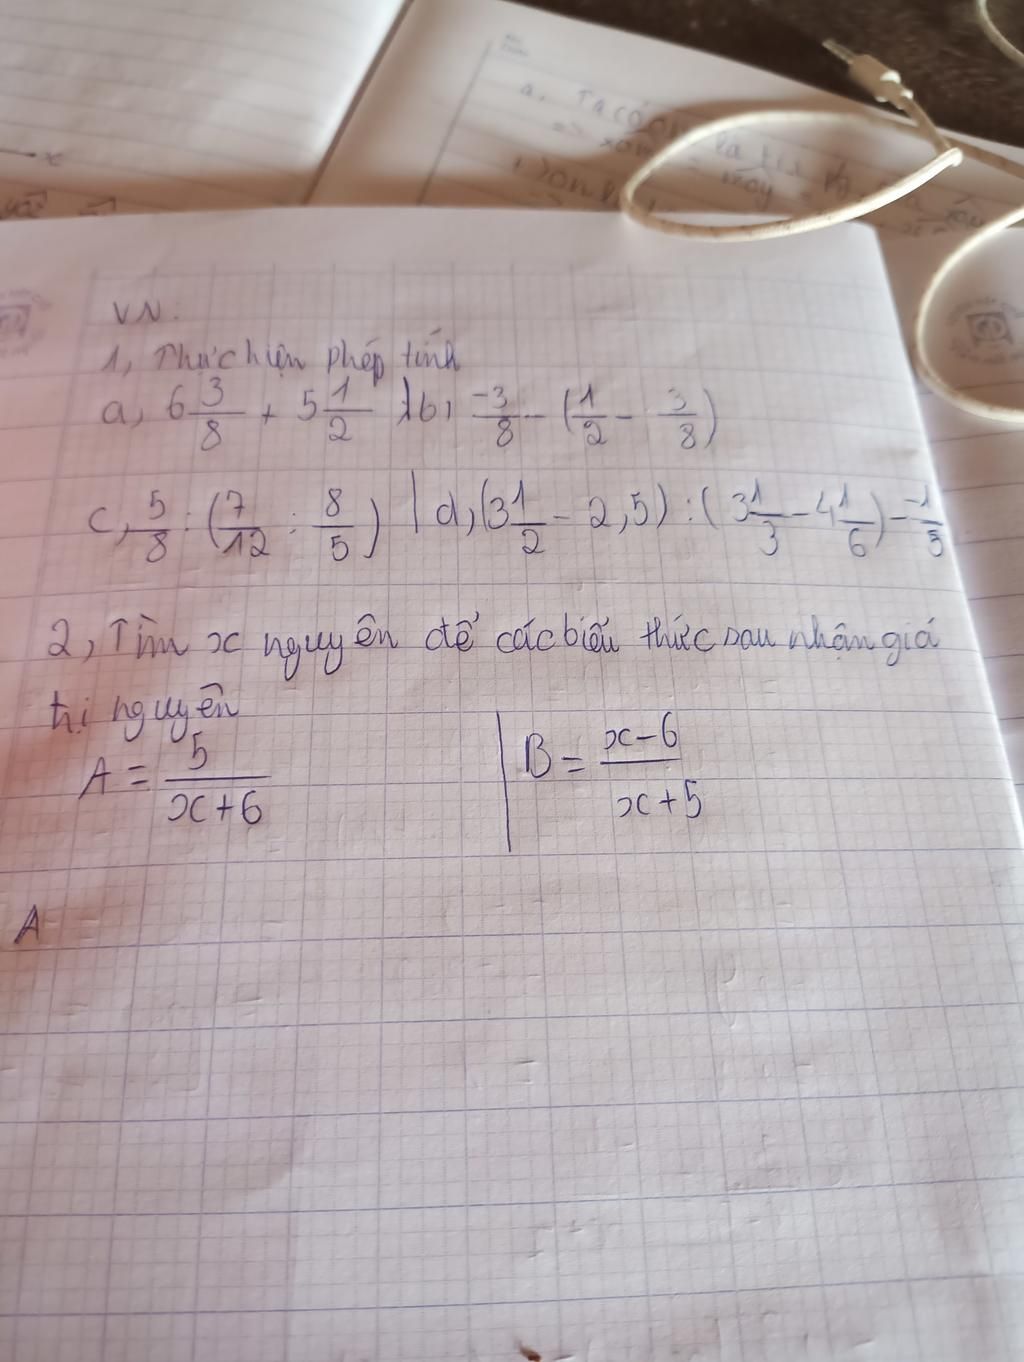 a, Ta có
VN:
1, Thực hiện phép tính
a, 6 3/8 + 5 1/2 | b, -3/8 - (1/2 - 3/8)
c, 5/8 : (7/12 : 8/5) | d, (3 1/2 - 2,5) : (3 1/3 - 4 1/6) - -1/5
2, Tìm x nguyên để các biểu thức sau nhận giá
trị nguyên
A = 5/(x+6) | B = (x-6)/(x+5)
A